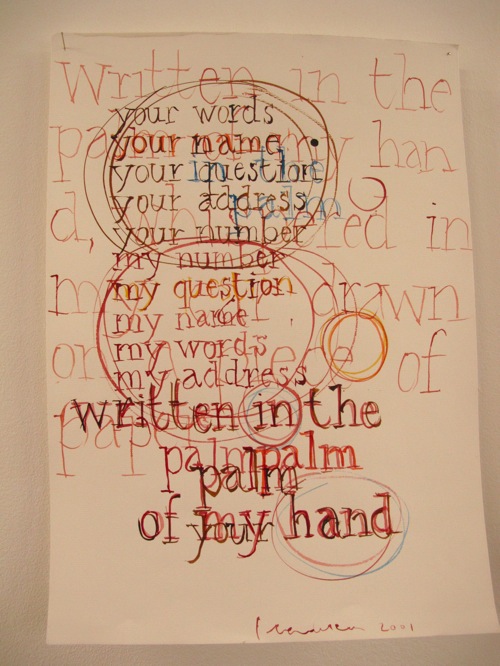 written in the
palm my han
d, whispered in
my drawn
on a piece of
paper
your words
your name
your question
your address
your number
in the
palm
my number
my question
my name
my words
my address
written in the
palm palm
palm
of my hand
your
2001